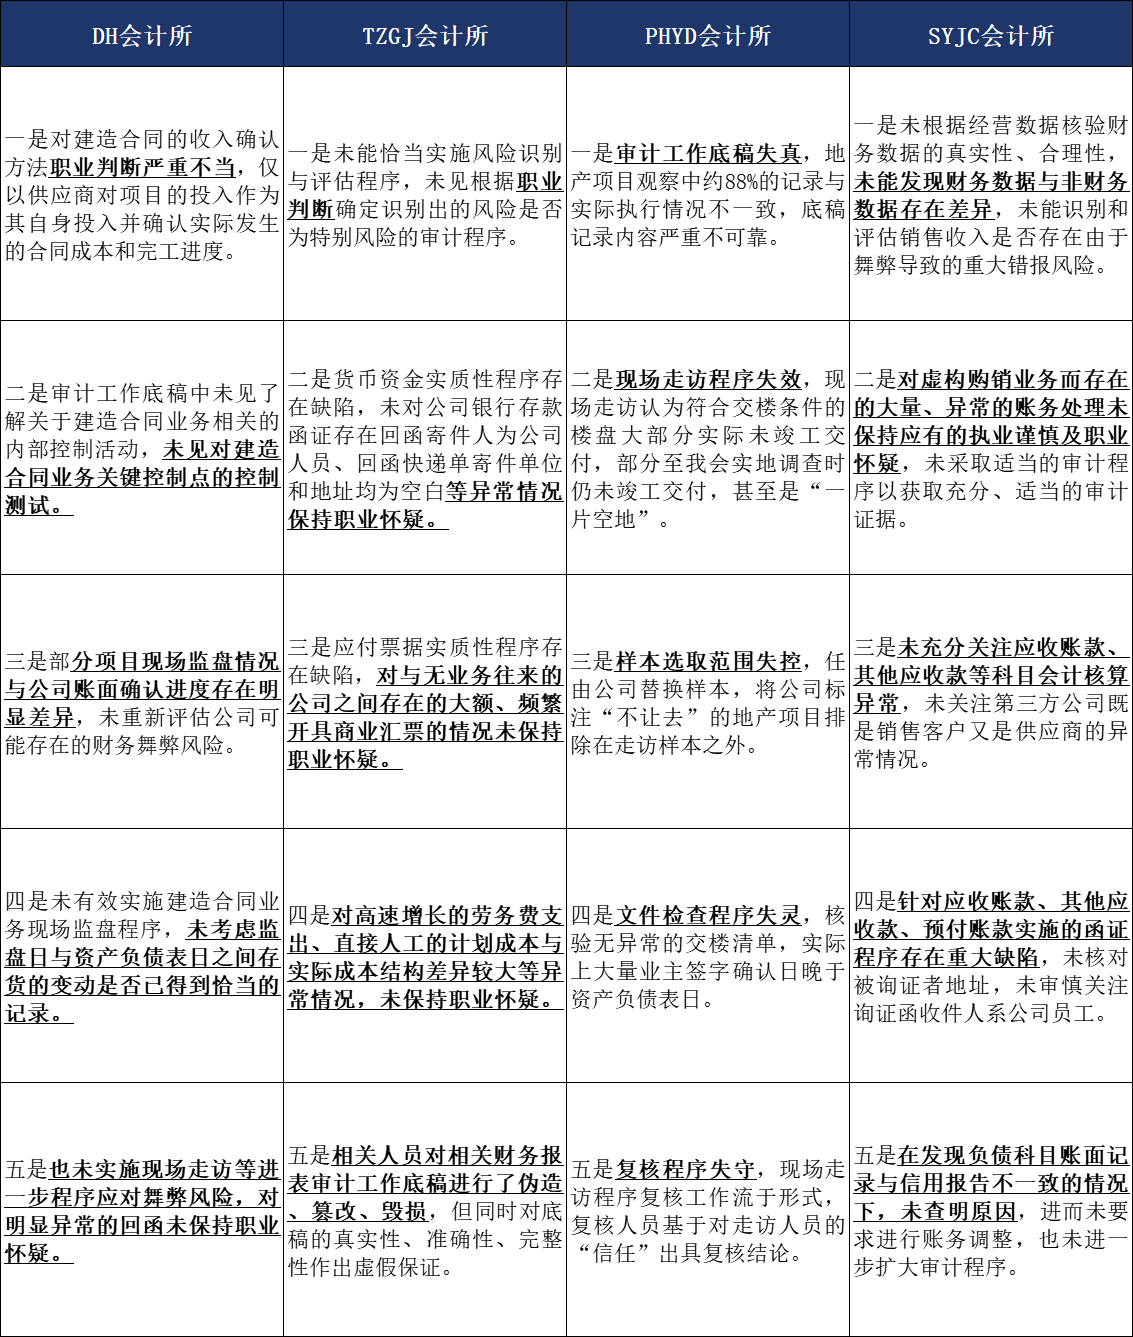 DH会计所
TZGJ会计所
PHYD会计所
SYJC会计所
一是对建造合同的收入确认
方法职业判断严重不当，仅
以供应商对项目的投入作为
其自身投入并确认实际发生
的合同成本和完工进度。
一是未能恰当实施风险识别
与评估程序，未见根据职业
判断确定识别出的风险是否
为特别风险的审计程序。
一是审计工作底稿失真，地
产项目观察中约88%的记录与
实际执行情况不一致，底稿
记录内容严重不可靠。
一是未根据经营数据核验财
务数据的真实性、合理性，
未能发现财务数据与非财务
数据存在差异，未能识别和
评估销售收入是否存在由于
舞弊导致的重大错报风险。
二是审计工作底稿中未见了
解关于建造合同业务相关的
内部控制活动，未见对建造
合同业务关键控制点的控制
测试。
二是货币资金实质性程序存
在缺陷，未对公司银行存款
函证存在回函寄件人为公司
人员、回函快递单寄件单位
和地址均为空白等异常情况
保持职业怀疑。
二是现场走访程序失效，现
场走访认为符合交楼条件的
楼盘大部分实际未竣工交
付，部分至我会实地调查时
仍未竣工交付，甚至是“一
片空地”。
二是对虚构购销业务而存在
的大量、异常的账务处理未
保持应有的执业谨慎及职业
怀疑，未采取适当的审计程
序以获取充分、适当的审计
证据。
三是部分项目现场监盘情况
与公司账面确认进度存在明
显差异，未重新评估公司可
能存在的财务舞弊风险。
三是应付票据实质性程序存
在缺陷，对与无业务往来的
公司之间存在的大额、频繁
开具商业汇票的情况未保持
职业怀疑。
三是样本选取范围失控，任
由公司替换样本，将公司标
注“不让去”的地产项目排
除在走访样本之外。
三是未充分关注应收账款、
其他应收款等科目会计核算
异常，未关注第三方公司既
是销售客户又是供应商的异
常情况。
四是未有效实施建造合同业
务现场监盘程序，未考虑监
盘日与资产负债表日之间存
货的变动是否已得到恰当的
记录。
四是对高速增长的劳务费支
出、直接人工的计划成本与
实际成本结构差异较大等异
常情况，未保持职业怀疑。
四是文件检查程序失灵，核
验无异常的交楼清单，实际
上大量业主签字确认日晚于
资产负债表日。
四是针对应收账款、其他应
收款、预付账款实施的函证
程序存在重大缺陷，未核对
被询证者地址，未审慎关注
询证函收件人系公司员工。
五是也未实施现场走访等进
一步程序应对舞弊风险，对
明显异常的回函未保持职业
怀疑。
五是相关人员对相关财务报
表审计工作底稿进行了伪造
、篡改、毁损，但同时对底
稿的真实性、准确性、完整
性作出虚假保证。
五是复核程序失守，现场走
访程序复核工作流于形式，
复核人员基于对走访人员的
“信任”出具复核结论。
五是在发现负债科目账面记
录与信用报告不一致的情况
下，未查明原因，进而未要
求进行账务调整，也未进一
步扩大审计程序。